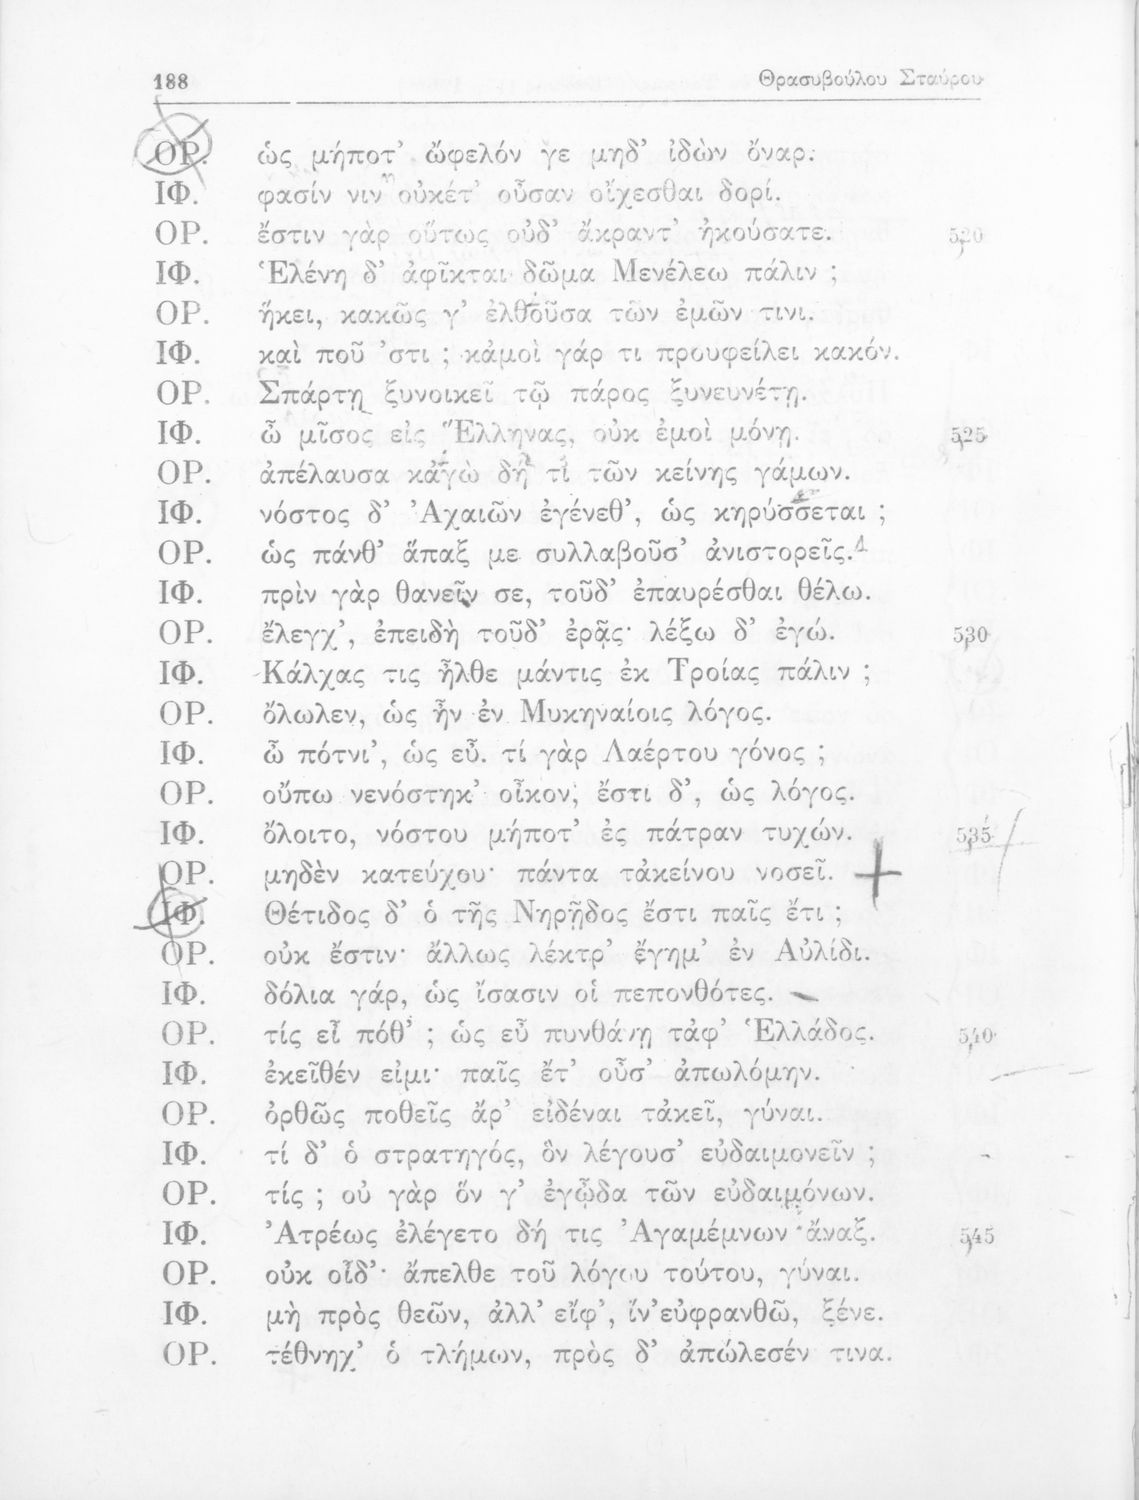 188 Θρασυβούλου Σταύρου
ΟΡ. ὡς μήποτ’ ὤφελόν γε μηδ’ ἰδὼν ὄναρ.
ΙΦ. φασίν νιν οὐκέτ’ οὖσαν οἴχεσθαι δορί.
ΟΡ. ἔστιν γὰρ οὕτως οὐδ’ ἄκραντ’ ἠκούσατε. 520
ΙΦ. Ἑλένη δ’ ἀφῖκται δῶμα Μενέλεω πάλιν ;
ΟΡ. ἥκει, κακῶς γ’ ἐλθοῦσα τῶν ἐμῶν τινι.
ΙΦ. καὶ ποῦ ’στι ; κἀμοὶ γάρ τι προυφείλει κακόν.
ΟΡ. Σπάρτῃ ξυνοικεῖ τῷ πάρος ξυνευνέτῃ.
ΙΦ. ὦ μῖσος εἰς Ἕλληνας, οὐκ ἐμοὶ μόνῃ. 525
ΟΡ. ἀπέλαυσα κἀγὼ δή τι τῶν κείνης γάμων.
ΙΦ. νόστος δ’ Ἀχαιῶν ἐγένεθ’, ὡς κηρύσσεται ;
ΟΡ. ὡς πάνθ’ ἅπαξ με συλλαβοῦσ’ ἀνιστορεῖς.
ΙΦ. πρὶν γὰρ θανεῖν σε, τοῦδ’ ἐπαυρέσθαι θέλω.
ΟΡ. ἔλεγχ’, ἐπειδὴ τοῦδ’ ἐρᾷς· λέξω δ’ ἐγώ. 530
ΙΦ. Κάλχας τις ἦλθε μάντις ἐκ Τροίας πάλιν ;
ΟΡ. ὄλωλεν, ὡς ἦν ἐν Μυκηναίοις λόγος.
ΙΦ. ὦ πότνι’, ὡς εὖ. τί γὰρ Λαέρτου γόνος ;
ΟΡ. οὔπω νενόστηκ’ οἶκον, ἔστι δ’, ὡς λόγος.
ΙΦ. ὄλοιτο, νόστου μήποτ’ ἐς πάτραν τυχών. 535
ΟΡ. μηδὲν κατεύχου· πάντα τἀκείνου νοσεῖ.
ΙΦ. Θέτιδος δ’ ὁ τῆς Νηρῇδος ἔστι παῖς ἔτι ;
ΟΡ. οὐκ ἔστιν· ἄλλως λέκτρ’ ἔγημ’ ἐν Αὐλίδι.
ΙΦ. δόλια γάρ, ὡς ἴσασιν οἱ πεπονθότες.
ΟΡ. τίς εἶ πόθ’ ; ὡς εὖ πυνθάνῃ τἀφ’ Ἑλλάδος. 540
ΙΦ. ἐκεῖθέν εἰμι· παῖς ἔτ’ οὖσ’ ἀπωλόμην.
ΟΡ. ὀρθῶς ποθεῖς ἄρ’ εἰδέναι τἀκεῖ, γύναι.
ΙΦ. τί δ’ ὁ στρατηγός, ὃν λέγουσ’ εὐδαιμονεῖν ;
ΟΡ. τίς ; οὐ γὰρ ὅν γ’ ἐγᾦδα τῶν εὐδαιμόνων.
ΙΦ. Ἀτρέως ἐλέγετο δή τις Ἀγαμέμνων ἄναξ. 545
ΟΡ. οὐκ οἶδ’· ἄπελθε τοῦ λόγου τούτου, γύναι.
ΙΦ. μὴ πρὸς θεῶν, ἀλλ’ εἴφ’, ἵν’εὐφρανθῶ, ξένε.
ΟΡ. τέθνηχ’ ὁ τλήμων, πρὸς δ’ ἀπώλεσέν τινα.